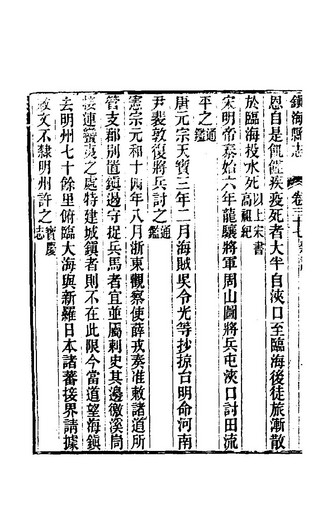 鎮海縣志 卷三十七
恩自是飢饉疾疫死者大半自浹口至臨海後徒旅漸散
於臨海投水死以上宋書高祖紀
宋明帝泰始六年龍驤將軍周山圖將兵屯浹口討田流
平之通鑑
唐元宗天寶三年二月海賊吳令光等抄掠台明命河南
尹裴敦復將兵討之通鑑
憲宗元和十四年八月浙東觀察使薛戎奏准敕諸道所
管支郡別置鎮遏守捉兵馬者宜並屬刺史其邊徼溪洞
接連蠻夷之處特建城鎮者則不在此限今當道望海鎮
去明州七十餘里俯臨大海與新羅日本諸蕃接界請據
敕文不隸明州許之寶慶志